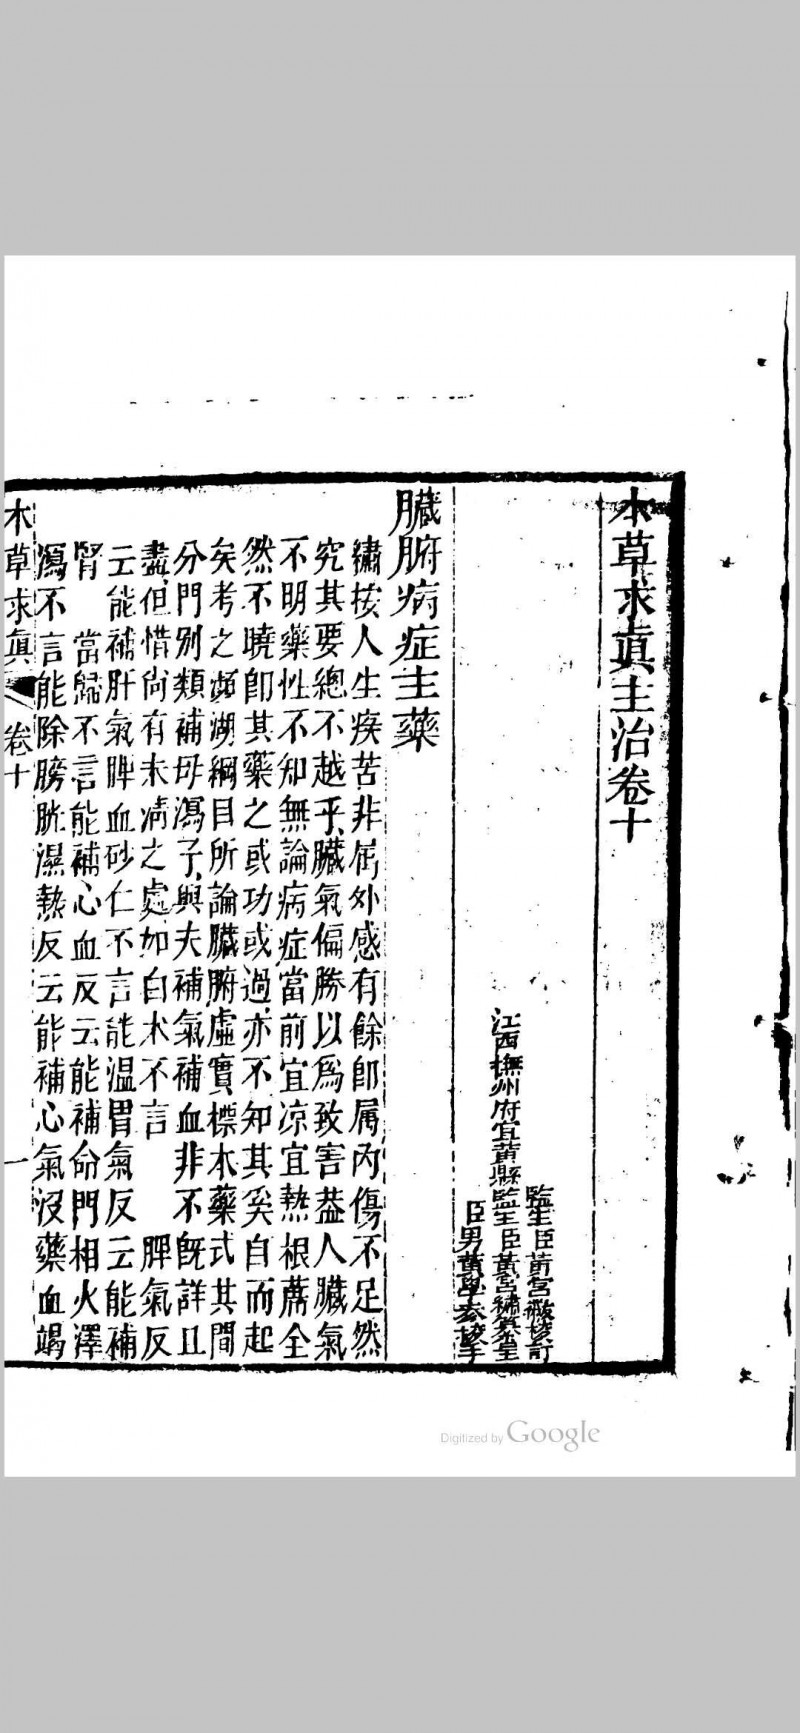 本草求真主治卷十
監生臣黃宮黻校訂
江西撫州府宜黃縣監生臣黃宮繡纂呈
臣男黃學
臟腑病症主藥
繡按人生疾苦非屬外感有餘卽屬內傷不足然
究其要總不越乎臟氣偏勝以爲致害葢人臟氣
不明藥性不知無論病症當前宜凉宜熱根蔕全
然不曉卽其藥之或功或過亦不知其奚自而起
矣考之瀕湖綱目所論臟腑虛實標本藥式其間
分門別類補母瀉子與夫補氣補血非不旣詳且
盡但惜尙有未淸之處如白朮不言　脾氣反
云能補肝氣脾血砂仁不言能溫胃氣反云能補
腎　當歸不言能補心血反云能補命門相火澤
瀉不言能除膀胱濕熱反云能補心氣沒藥血竭
本草求真　卷十　一
Digitized by Google